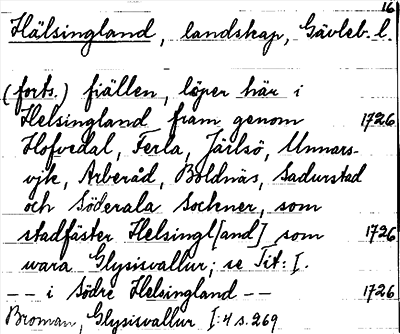 16
Hälsingland, landskap, Gävleb. l.
(forts.) fiällen, löper här i
Helsingland fram genom 1726
Hofvedal, Ferla, Järlsö, Unnars-
vjk, Arberåd, Boldnäs, Sadurstad
och Söderala Sockner, som
stadfäster Helsingl[and] som 1726
wara Glysisvallur; se Tit: I.
-- i Södre Helsingland -- 1726
Broman, Glysisvallur I:4 s. 269